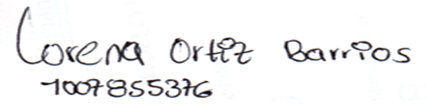 Lorena Ortiz Barrios
1007855376